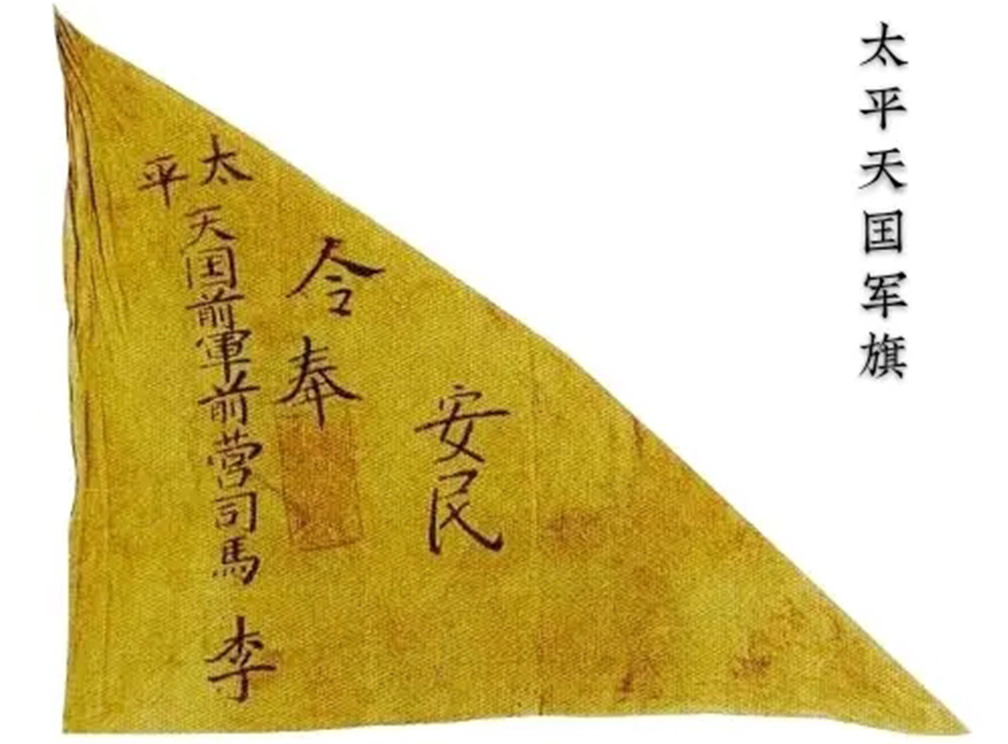 太平天囯军旗
安民
令奉
太平天囯前軍前营司馬 李